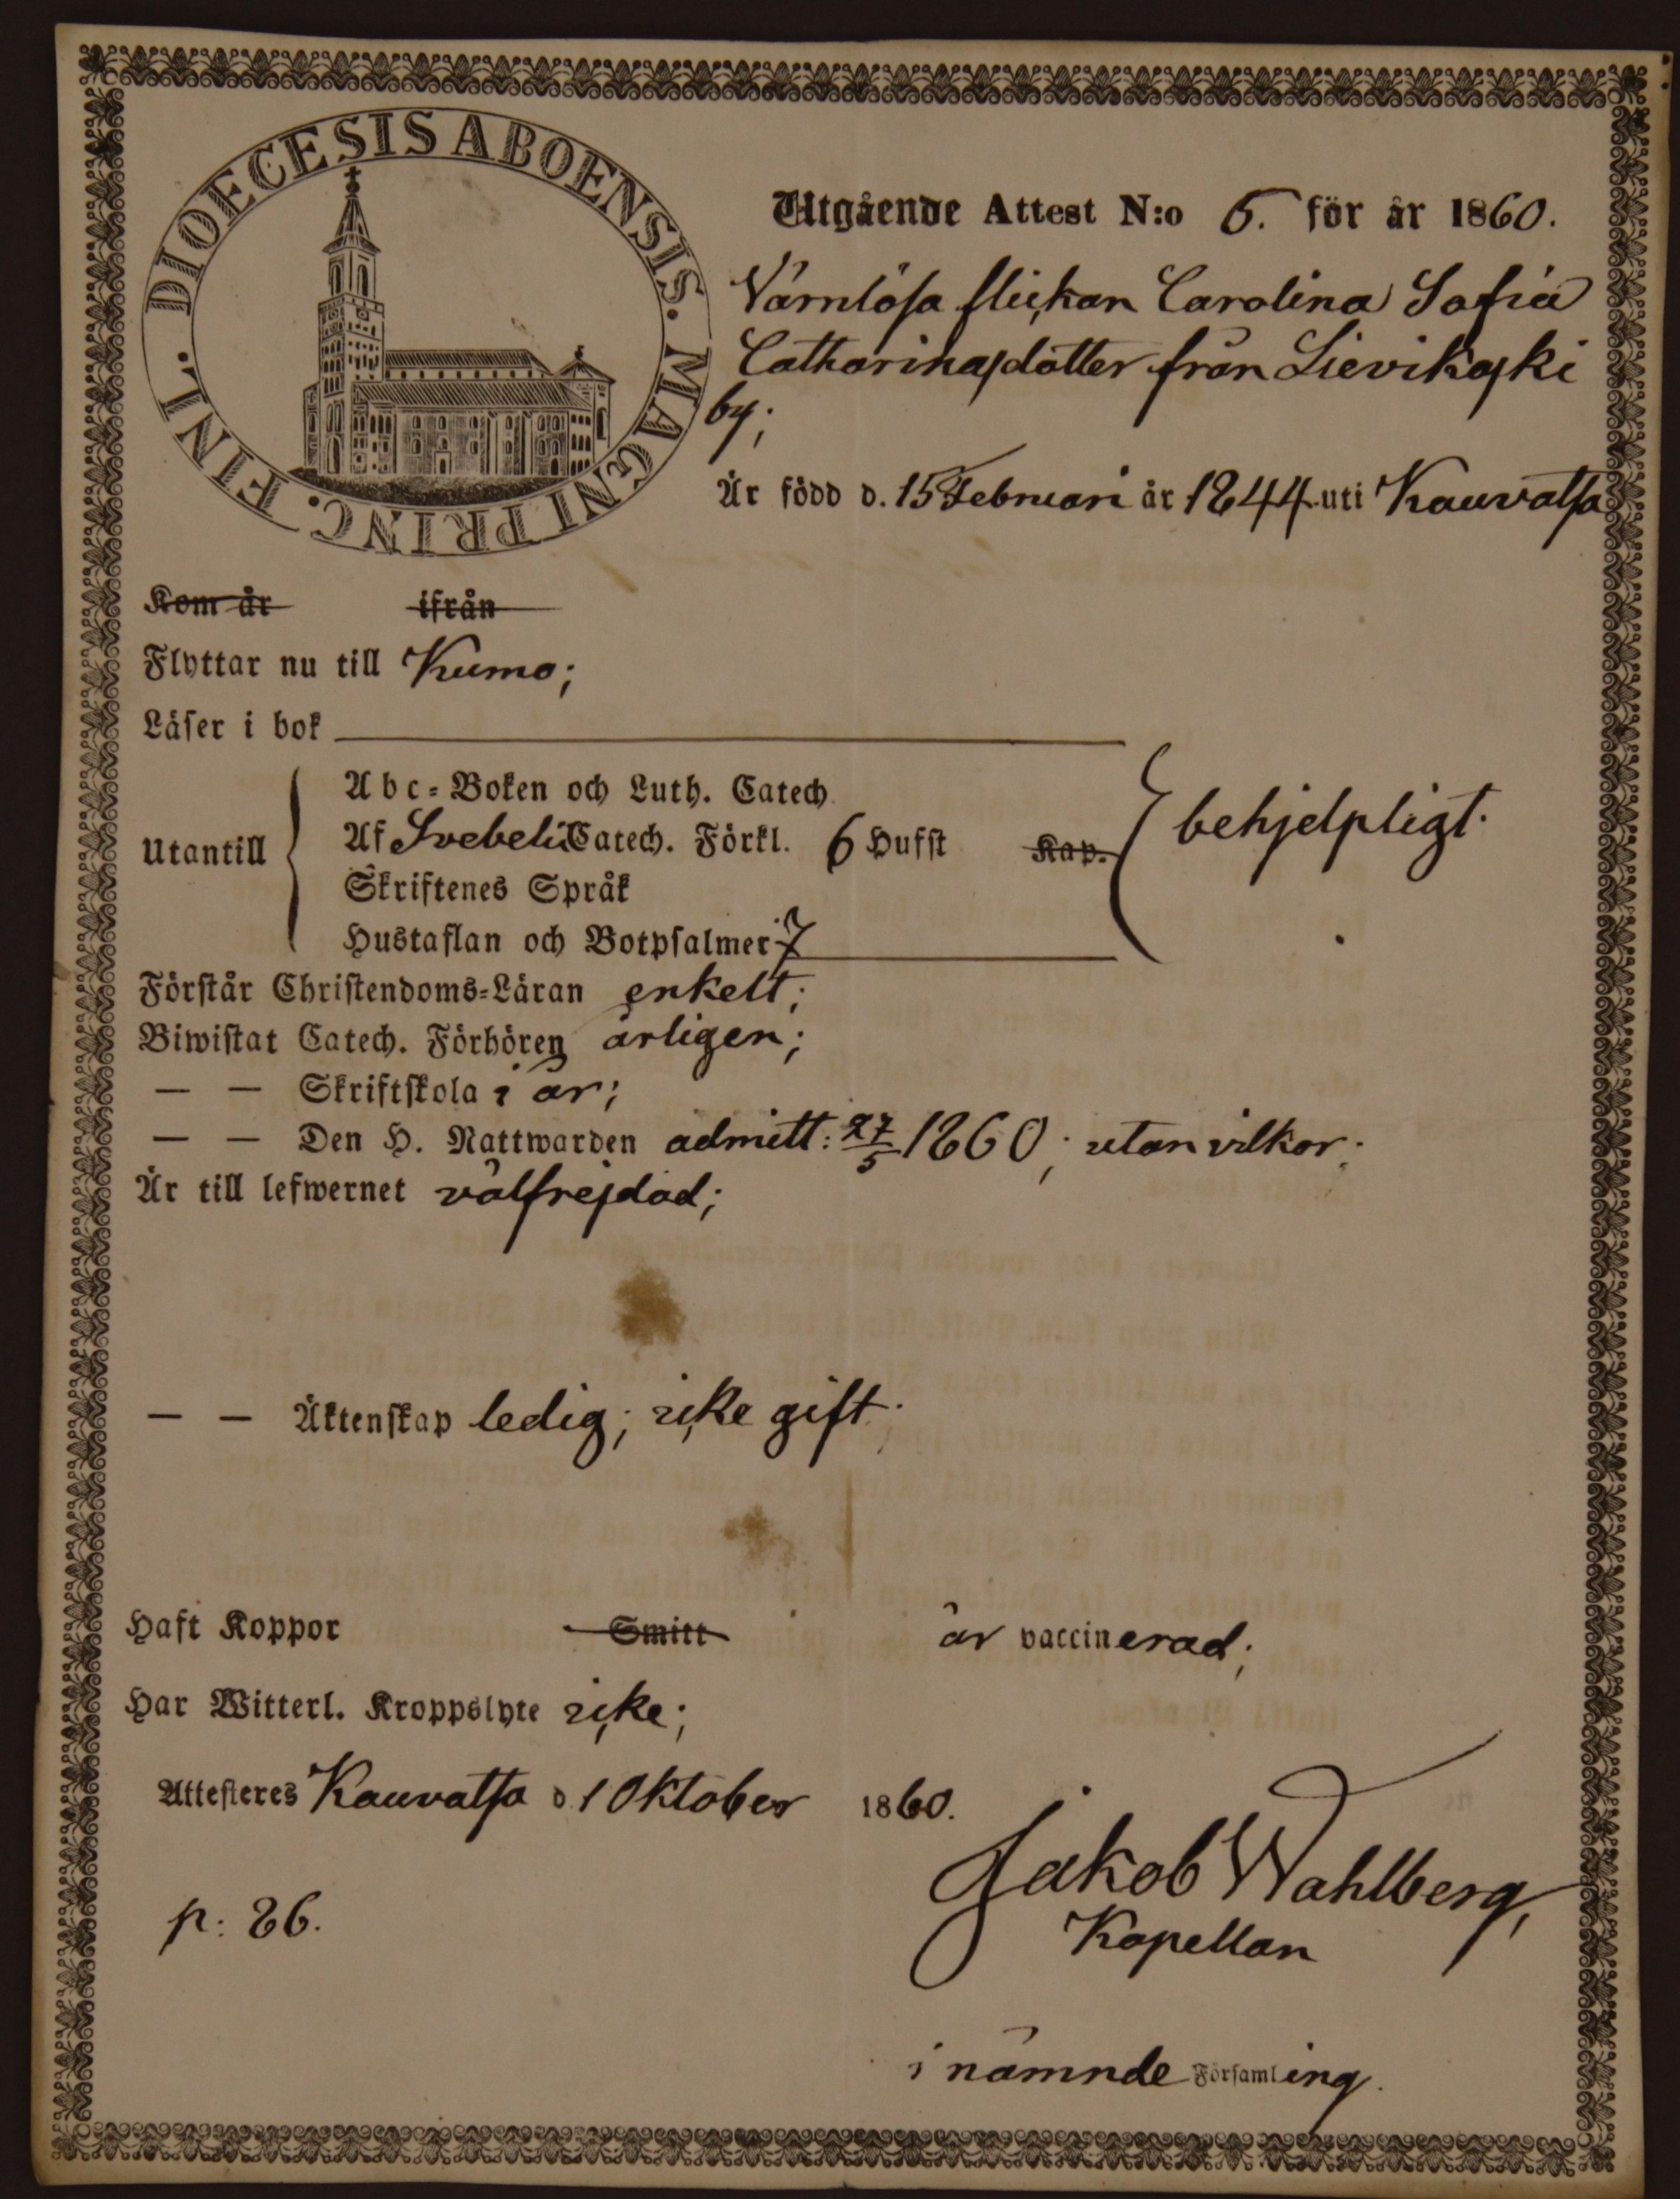 DIOECESIS ABOENSIS. MAGNI PRINC. FINL.
Utgående Attest N:o 5. för år 1860.
Värnlösa flickan Carolina Sofia
Catharinasdotter från Lievikoski
by;
Är född d. 15 Februari år 1844 uti Kauvatsa
Kom år ifrån
Flyttar nu till Kumo;
Läser i bok
Utantill
Abc-Boken och Luth. Catech.
Af Svebelii Catech. Förkl. 6 Hufst Kap.
Skriftenes Språk
Hustaflan och Botpsalmer 7
behjelpligt.
Förstår Christendoms-Läran enkelt;
Biwistat Catech. Förhören årligen;
— — Skriftskola i år;
— — Den H. Nattwarden admitt: 27/5 1860; utan vilkor;
Är till lefwernet välfrejdad;
— — Äktenskap ledig; icke gift.
Haft Koppor Smitt är vaccinerad;
Har Witterl. Kroppslyte icke;
Attesteres Kauvatsa d. 1 Oktober 1860.
Jakob Wahlberg,
Kapellan
p: 86.
i nämnde Församling.